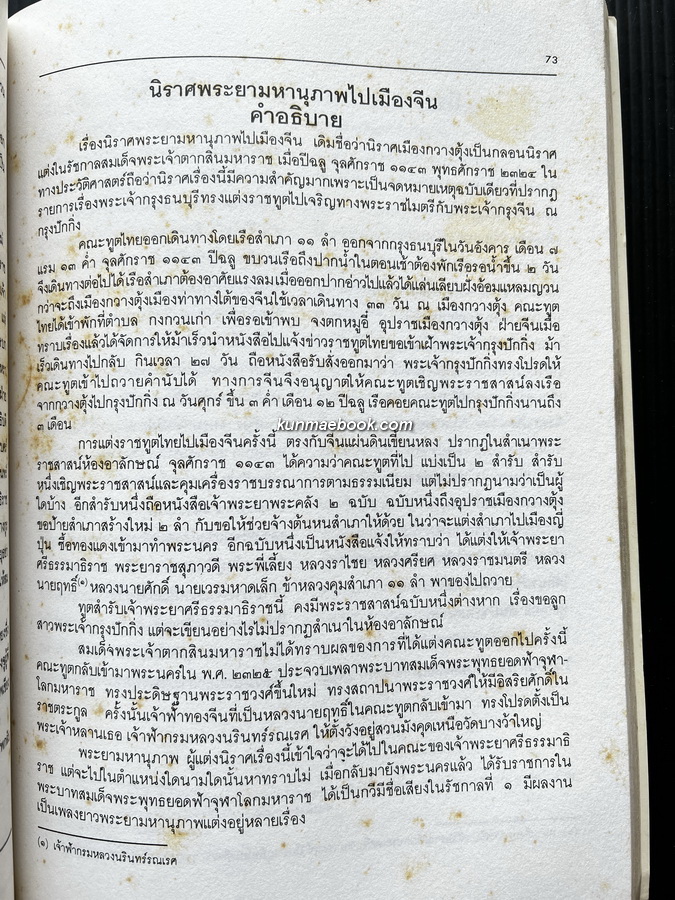 73
นิราศพระยามหานุภาพไปเมืองจีน
คำอธิบาย
เรื่องนิราศพระยามหานุภาพไปเมืองจีน เดิมชื่อว่านิราศเมืองกวางตุ้งเป็นกลอนนิราศ
แต่งในรัชกาลสมเด็จพระเจ้าตากสินมหาราช เมื่อปีฉลู จุลศักราช ๑๑๔๓ พุทธศักราช ๒๓๒๔ ใน
ทางประวัติศาสตร์ถือว่านิราศเรื่องนี้มีความสำคัญมากเพราะเป็นจดหมายเหตุฉบับเดียวที่ปรากฏ
รายการเรื่องพระเจ้ากรุงธนบุรีทรงแต่งราชทูตไปเจริญทางพระราชไมตรีกับพระเจ้ากรุงจีน ณ
กรุงปักกิ่ง
คณะทูตไทยออกเดินทางโดยเรือสำเภา ๑๑ ลำ ออกจากกรุงธนบุรีในวันอังคาร เดือน ๗
แรม ๑๓ ค่ำ จุลศักราช ๑๑๔๓ ปีฉลู ขบวนเรือถึงปากน้ำในตอนเช้าต้องพักเรือรอน้ำขึ้น ๒ วัน
จึงเดินทางต่อไปได้เรือสำเภาต้องอาศัยแรงลมเมื่อออกปากอ่าวไปแล้วได้แล่นเลียบฝั่งอ้อมแหลมญวน
กว่าจะถึงเมืองกวางตุ้งเมืองท่าทางใต้ของจีนใช้เวลาเดินทาง ๓๓ วัน ณ เมืองกวางตุ้ง คณะทูต
ไทยได้เข้าพักที่ตำบล กงกวนเก่า เพื่อรอเข้าพบ จงตกหมูอี๋ อุปราชเมืองกวางตุ้ง ฝ่ายจีนเมื่อ
ทราบเรื่องแล้วได้จัดการให้ม้าเร็วนำหนังสือไปแจ้งข่าวราชทูตไทยขอเข้าเฝ้าพระเจ้ากรุงปักกิ่ง ม้า
เร็วเดินทางไปกลับ กินเวลา ๒๗ วัน ถือหนังสือรับสั่งออกมาว่า พระเจ้ากรุงปักกิ่งทรงโปรดให้
คณะทูตเข้าไปถวายคำนับได้ ทางการจีนจึงอนุญาตให้คณะทูตเชิญพระราชสาสน์ลงเรือ
จากกวางตุ้งไปกรุงปักกิ่ง ณ วันศุกร์ ขึ้น ๓ ค่ำ เดือน ๑๒ ปีฉลู เรือคอยคณะทูตไปกรุงปักกิ่งนานถึง
๓ เดือน
kunmaebook.com
การแต่งราชทูตไทยไปเมืองจีนครั้งนี้ ตรงกับจีนแผ่นดินเขียนหลง ปรากฏในสำเนาพระ
ราชสาสน์ห้องอาลักษณ์ จุลศักราช ๑๑๔๓ ได้ความว่าคณะทูตที่ไป แบ่งเป็น ๒ สำรับ สำรับ
หนึ่งเชิญพระราชสาสน์และคุมเครื่องราชบรรณาการตามธรรมเนียม แต่ไม่ปรากฏนามว่าเป็นผู้
ใดบ้าง อีกสำรับหนึ่งถือหนังสือเจ้าพระยาพระคลัง ๒ ฉบับ ฉบับหนึ่งถึงอุปราชเมืองกวางตุ้ง
ขอป้ายสำเภาสร้างใหม่ ๒ ลำ กับขอให้ช่วยจ้างต้นหนสำเภาให้ด้วย ในว่าจะแต่งสำเภาไปเมืองญี่
ปุ่น ซื้อทองแดงเข้ามาทำพระนคร อีกฉบับหนึ่งเป็นหนังสือแจ้งให้ทราบว่า ได้แต่งให้เจ้าพระยา
ศรีธรรมาธิราช พระยาราชสุภาวดี พระพี่เลี้ยง หลวงราไชย หลวงศรียศ หลวงราชมนตรี หลวง
นายฤทธิ์(๑) หลวงนายศักดิ์ นายเวรมหาดเล็ก ข้าหลวงคุมสำเภา ๑๑ ลำ พาของไปถวาย
ทูตสำรับเจ้าพระยาศรีธรรมาธิราชนี้ คงมีพระราชสาสน์ฉบับหนึ่งต่างหาก เรื่องขอลูก
สาวพระเจ้ากรุงปักกิ่ง แต่จะเขียนอย่างไรไม่ปรากฏสำเนาในห้องอาลักษณ์
สมเด็จพระเจ้าตากสินมหาราชไม่ได้ทราบผลของการที่ได้แต่งคณะทูตออกไปครั้งนี้
คณะทูตกลับเข้ามาพระนครใน พ.ศ. ๒๓๒๕ ประจวบเพลาพระบาทสมเด็จพระพุทธยอดฟ้าจุฬา-
โลกมหาราช ทรงประดิษฐานพระราชวงศ์ขึ้นใหม่ ทรงสถาปนาพระราชวงศ์ให้มีอิสริยศักดิ์ใน
ราชตระกูล ครั้งนั้นเจ้าฟ้าทองจีนที่เป็นหลวงนายฤทธิ์ในคณะทูตกลับเข้ามา ทรงโปรดตั้งเป็น
พระเจ้าหลานเธอ เจ้าฟ้ากรมหลวงนรินทร์รณเรศ ให้ตั้งวังอยู่สวนมังคุดเหนือวัดบางว้าใหญ่
พระยามหานุภาพ ผู้แต่งนิราศเรื่องนี้เข้าใจว่าจะได้ไปในคณะของเจ้าพระยาศรีธรรมาธิ
ราช แต่จะไปในตำแหน่งใดนามใดนั้นหาทราบไม่ เมื่อกลับมายังพระนครแล้ว ได้รับราชการใน
พระบาทสมเด็จพระพุทธยอดฟ้าจุฬาโลกมหาราช ได้เป็นกวีมีชื่อเสียงในรัชกาลที่ ๑ มีผลงาน
เป็นเพลงยาวพระยามหานุภาพแต่งอยู่หลายเรื่อง
(๑) เจ้าฟ้ากรมหลวงนรินทร์รณเรศ